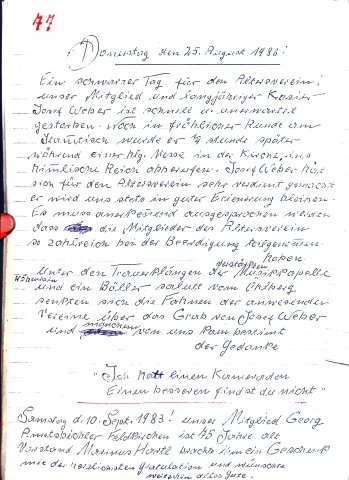 77
Donnerstag den 25. August 1983!
Ein schwarzer Tag für den Altersverein!
unser Mitglied und langjähriger Kasier
Josef Weber ist schnell u. unerwartet
gestorben. Noch in fröhlicher Runde am
Stamtisch wurde er ¼ stunde später
während einer hlg. Messe in der Kirche, ins
himlische Reich abberufen. Josef Weber hat
sich für den Altersverein sehr verdint gemacht
er wird uns stets in guter Erienerung bleiben.
Es muss anerkenend ausgesprochen werden
dass die Mitglieder des Altersverein
so zahlreich bei der Beerdigung teilgenomen
haben
Unter den Trauerklängen der Musikkapelle
und ein Böller salut vom Ehlberg
senkten sich die Fahnen der anwesenden
Vereine über das Grab von Josef Weber
und manchem von uns kam bestimt
der Gedanke
"Ich hatt einen Kameraden
Einen besseren findst du nicht"
Samstag d. 10. Sept. 1983! unser Mitglied Georg
Feldkirchen ist 75 Jahre alt
Vorstand Hartl brachte ihm ein Geschenk
mit der herzlichsten Gratulation und wünschen
weiterhin alles Gute.